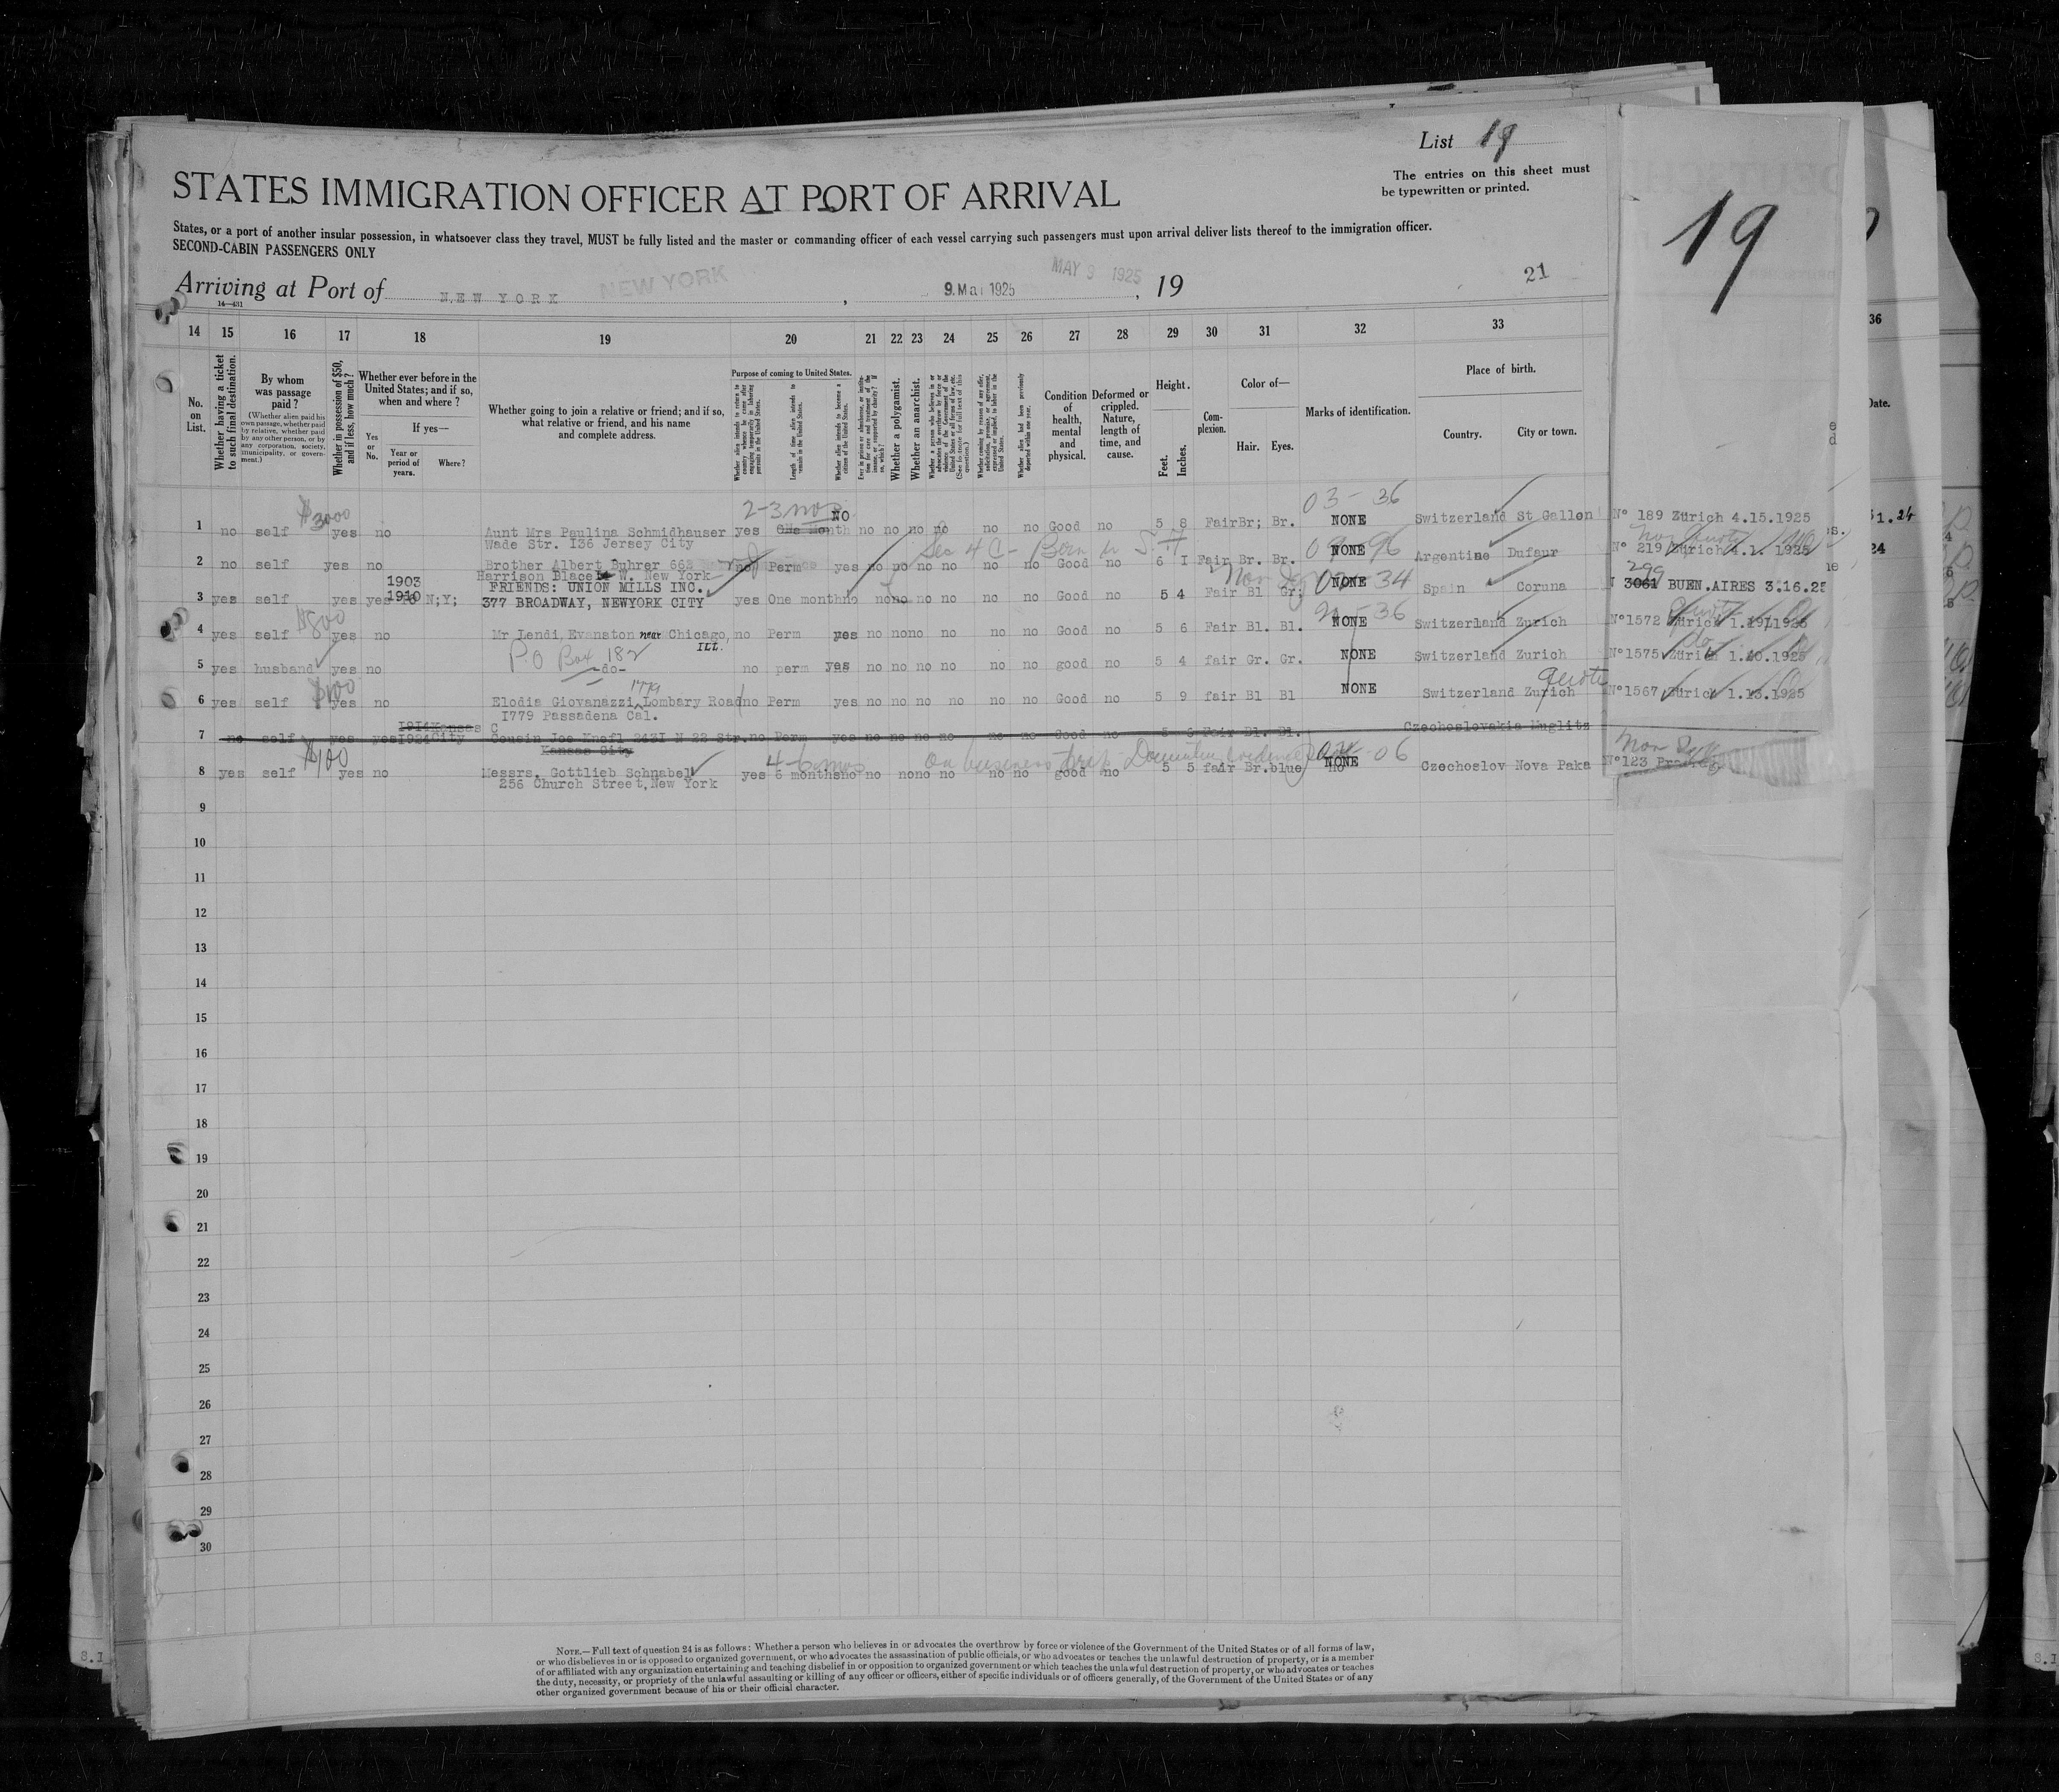 List 19
The entries on this sheet must
be typewritten or printed.
STATES IMMIGRATION OFFICER AT PORT OF ARRIVAL
States, or a port of another insular possession, in whatsoever class they travel, MUST be fully listed and the master or commanding officer of each vessel carrying such passengers must upon arrival deliver lists thereof to the immigration officer.
SECOND-CABIN PASSENGERS ONLY
Arriving at Port of NEW YORK NEW YORK, 9. Mai 1925 MAY 9 1925, 19
21
19
14—431
14 15 16 17 18 19 20 21 22 23 24 25 26 27 28 29 30 31 32 33
36
No. on List.
Whether having a ticket to such final destination.
By whom was passage paid?
(Whether alien paid his own passage, whether paid by relative, whether paid by any other person, or by any corporation, society, municipality, or government.)
Whether in possession of $50, and if less, how much?
Whether ever before in the United States; and if so, when and where?
If yes—
Yes or No.
Year or period of years.
Where?
Whether going to join a relative or friend; and if so, what relative or friend, and his name and complete address.
Purpose of coming to United States.
Length of time alien intends to remain in the United States.
Whether alien intends to become a citizen of the United States.
Whether a polygamist.
Whether an anarchist.
Condition of health, mental and physical.
Deformed or crippled. Nature, length of time, and cause.
Height.
Feet.
Inches.
Complexion.
Color of—
Hair. Eyes.
Marks of identification.
Place of birth.
Country. City or town.
Date.
$3000 2-3 mos NO 03-36
1 no self yes no Aunt Mrs Paulina Schmidhauser yes One Month no no no no no no Good no 5 8 Fair Br; Br. NONE Switzerland St Gallen N° 189 Zürich 4.15.1925
Wade Str. I36 Jersey City
Sec 4 C - Born in
2 no self yes no Brother Albert Buhrer 662 no Perm yes no no no no no no Good no 6 I Fair Br. Br. NONE Argentine Dufaur N° 219 Zürich 1925
Harrison Place W. New York
1903 FRIENDS: UNION MILLS INC.
3 yes self yes yes 1910 N;Y; 377 BROADWAY, NEWYORK CITY yes One month no no no no no no no Good no 5 4 Fair Bl Gr; NONE 34 Spain Coruna 299 3061 BUEN.AIRES 3.16.25
$800
4 yes self yes no Mr Lendi, Evanston near Chicago, ILL. no Perm yes no no no no no no Good no 5 6 Fair Bl. Bl. NONE Switzerland Zurich N°1572 Zürich 1.19.1925
P.O Box 182
5 yes husband yes no -do- no perm yes no no no no no no good no 5 4 fair Gr. Gr. NONE Switzerland Zurich N°1575 Zürich 1.20.1925
$100 1779 Quota
6 yes self yes no Elodia Giovanazzi Lombary Road no Perm yes no no no no no no Good no 5 9 fair Bl Bl NONE Switzerland Zurich N°1567 Zürich 1.13.1925
I779 Passadena Cal.
I9I4 Kansas C
7 no self yes yes I924 City Cousin Joe Knefl 243I N 22 Str. no Perm yes no no no no no no Good no 5 6 Fair Bl. Bl. Czechoslovakia Muglitz
Kansas City
$100 4-6 mos On business trip 06
8 yes self yes no Messrs. Gottlieb Schnabel yes 6 months no no no no no no no good no 5 5 fair Br. blue NONE no Czechoslov Nova Paka N°123
256 Church Street, New York
9
10
11
12
13
14
15
16
17
18
19
20
21
22
23
24
25
26
27
28
29
30
NOTE.—Full text of question 24 is as follows: Whether a person who believes in or advocates the overthrow by force or violence of the Government of the United States or of all forms of law,
or who disbelieves in or is opposed to organized government, or who advocates the assassination of public officials, or who advocates or teaches the unlawful destruction of property, or is a member
of or affiliated with any organization entertaining and teaching disbelief in or opposition to organized government or which teaches the unlawful destruction of property, or who advocates or teaches
the duty, necessity, or propriety of the unlawful assaulting or killing of any officer or officers, either of specific individuals or of officers generally, of the Government of the United States or of any
other organized government because of his or their official character.